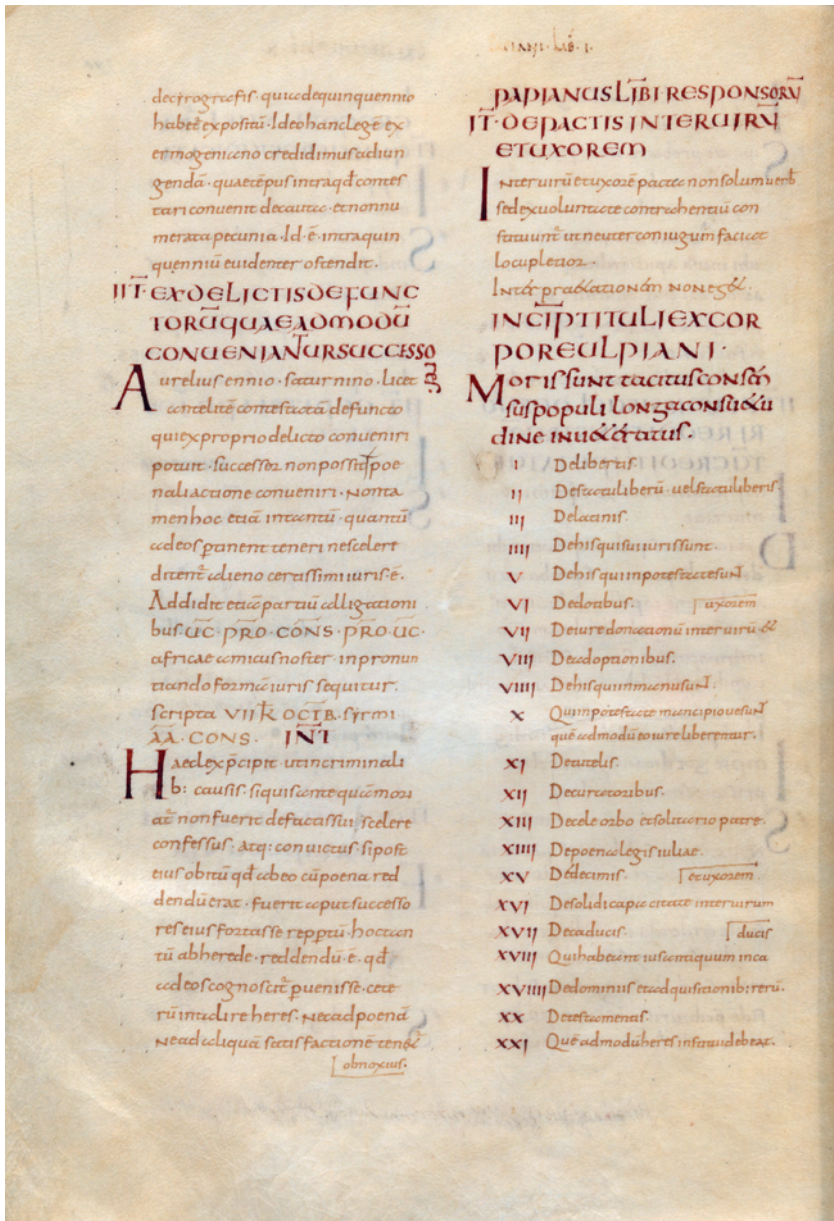 decirografis· quiadequinquennio
habet expositū· Ideohanclegē ex
ermogeniano credidimus adiun
gendā· quaetēpus intraqđ contes
tari convenit decauta· etnonnu
merata pecunia· Id· ē· intraquin
quenniū euidenter ostendit·
IIT· EXDELICTISDEFUNC
TORŪQUAEADMODŪ
CONUENIANTURSUCCESSO
Aurelius ennio· saturnino· Licet
antelitē contestatā defuncto
quiexproprio delicto conueniri
potuit· successor nonpossit poe
naliactione conveniri· Nonta
menhoc etiā intantū· quantū
adeos ptinent teneri nesceleri
ditent alieno certissimi iuris· ē·
Addidit etiā partiū alligationi
bus· UC· PRO· CONS· PRO· UC·
africae amicus noster· inpronun
tiando formā iuris sequitur·
scripta VII K OCTB· syrmi
AA· CONS· INT
Haeclex pcipit· utincriminali
b: causis· siquis antequā mori
at non fuerit defactissui scelere
confessus· atq: convictus· sipost
eius obitū qđ abeo cūpoena red
dendū erat· fuerit aput successo
res eius fortasse reppertū· hoctan
tū abherede· reddendū· ē· qđ
adeos cognoscit puenisse· cete
rū intadire heres· Necad poenā
Nead aliquā satisfactionē tenet
obnoxius·
PAPIANUS LIBI RESPONSORŪ
IT· DEPACTIS INTERUIRŪ
ETUXOREM
Interuirū etuxorē pacta nonsolum uerb
sedexuoluntate contrahentiū con
stituunt ut neuter coniugum faciat
Locupletior·
Interpraetationem non eget·
INCIPTITULIEXCOR
POREULPIANI·
Morissunt tacitusconsen
suspopuli Longaconsuetu
dine inueteratus·
I Delibertis·
II Destatuliberū· uelstatuliberis·
III Delatinis·
IIII Dehisquisuiiurissunt·
V Dehisquiinpotestatesunt
VI Dedotibus· uxorem
VII Deiuredonationū interuirū· et
VIII Deadoptionibus·
VIIII Dehisquiinmanusunt·
X Quiinpotestate mancipiouesunt
quē admodū eoiure liberentur·
XI Detutelis·
XII Decuratoribus·
XIII Decele orbo etsolitario patre·
XIIII Depoena legis iuliae·
XV Dedecimis· etuxorem·
XVI Desolidicapacitate interuirum
XVII Decaducis· ducis
XVIII Quihabeant iusantiquum inca
XVIIII Dedominiis etadquisitionib: rerū·
XX Detestamentis·
XXI Quē admodū heres institui debeat·